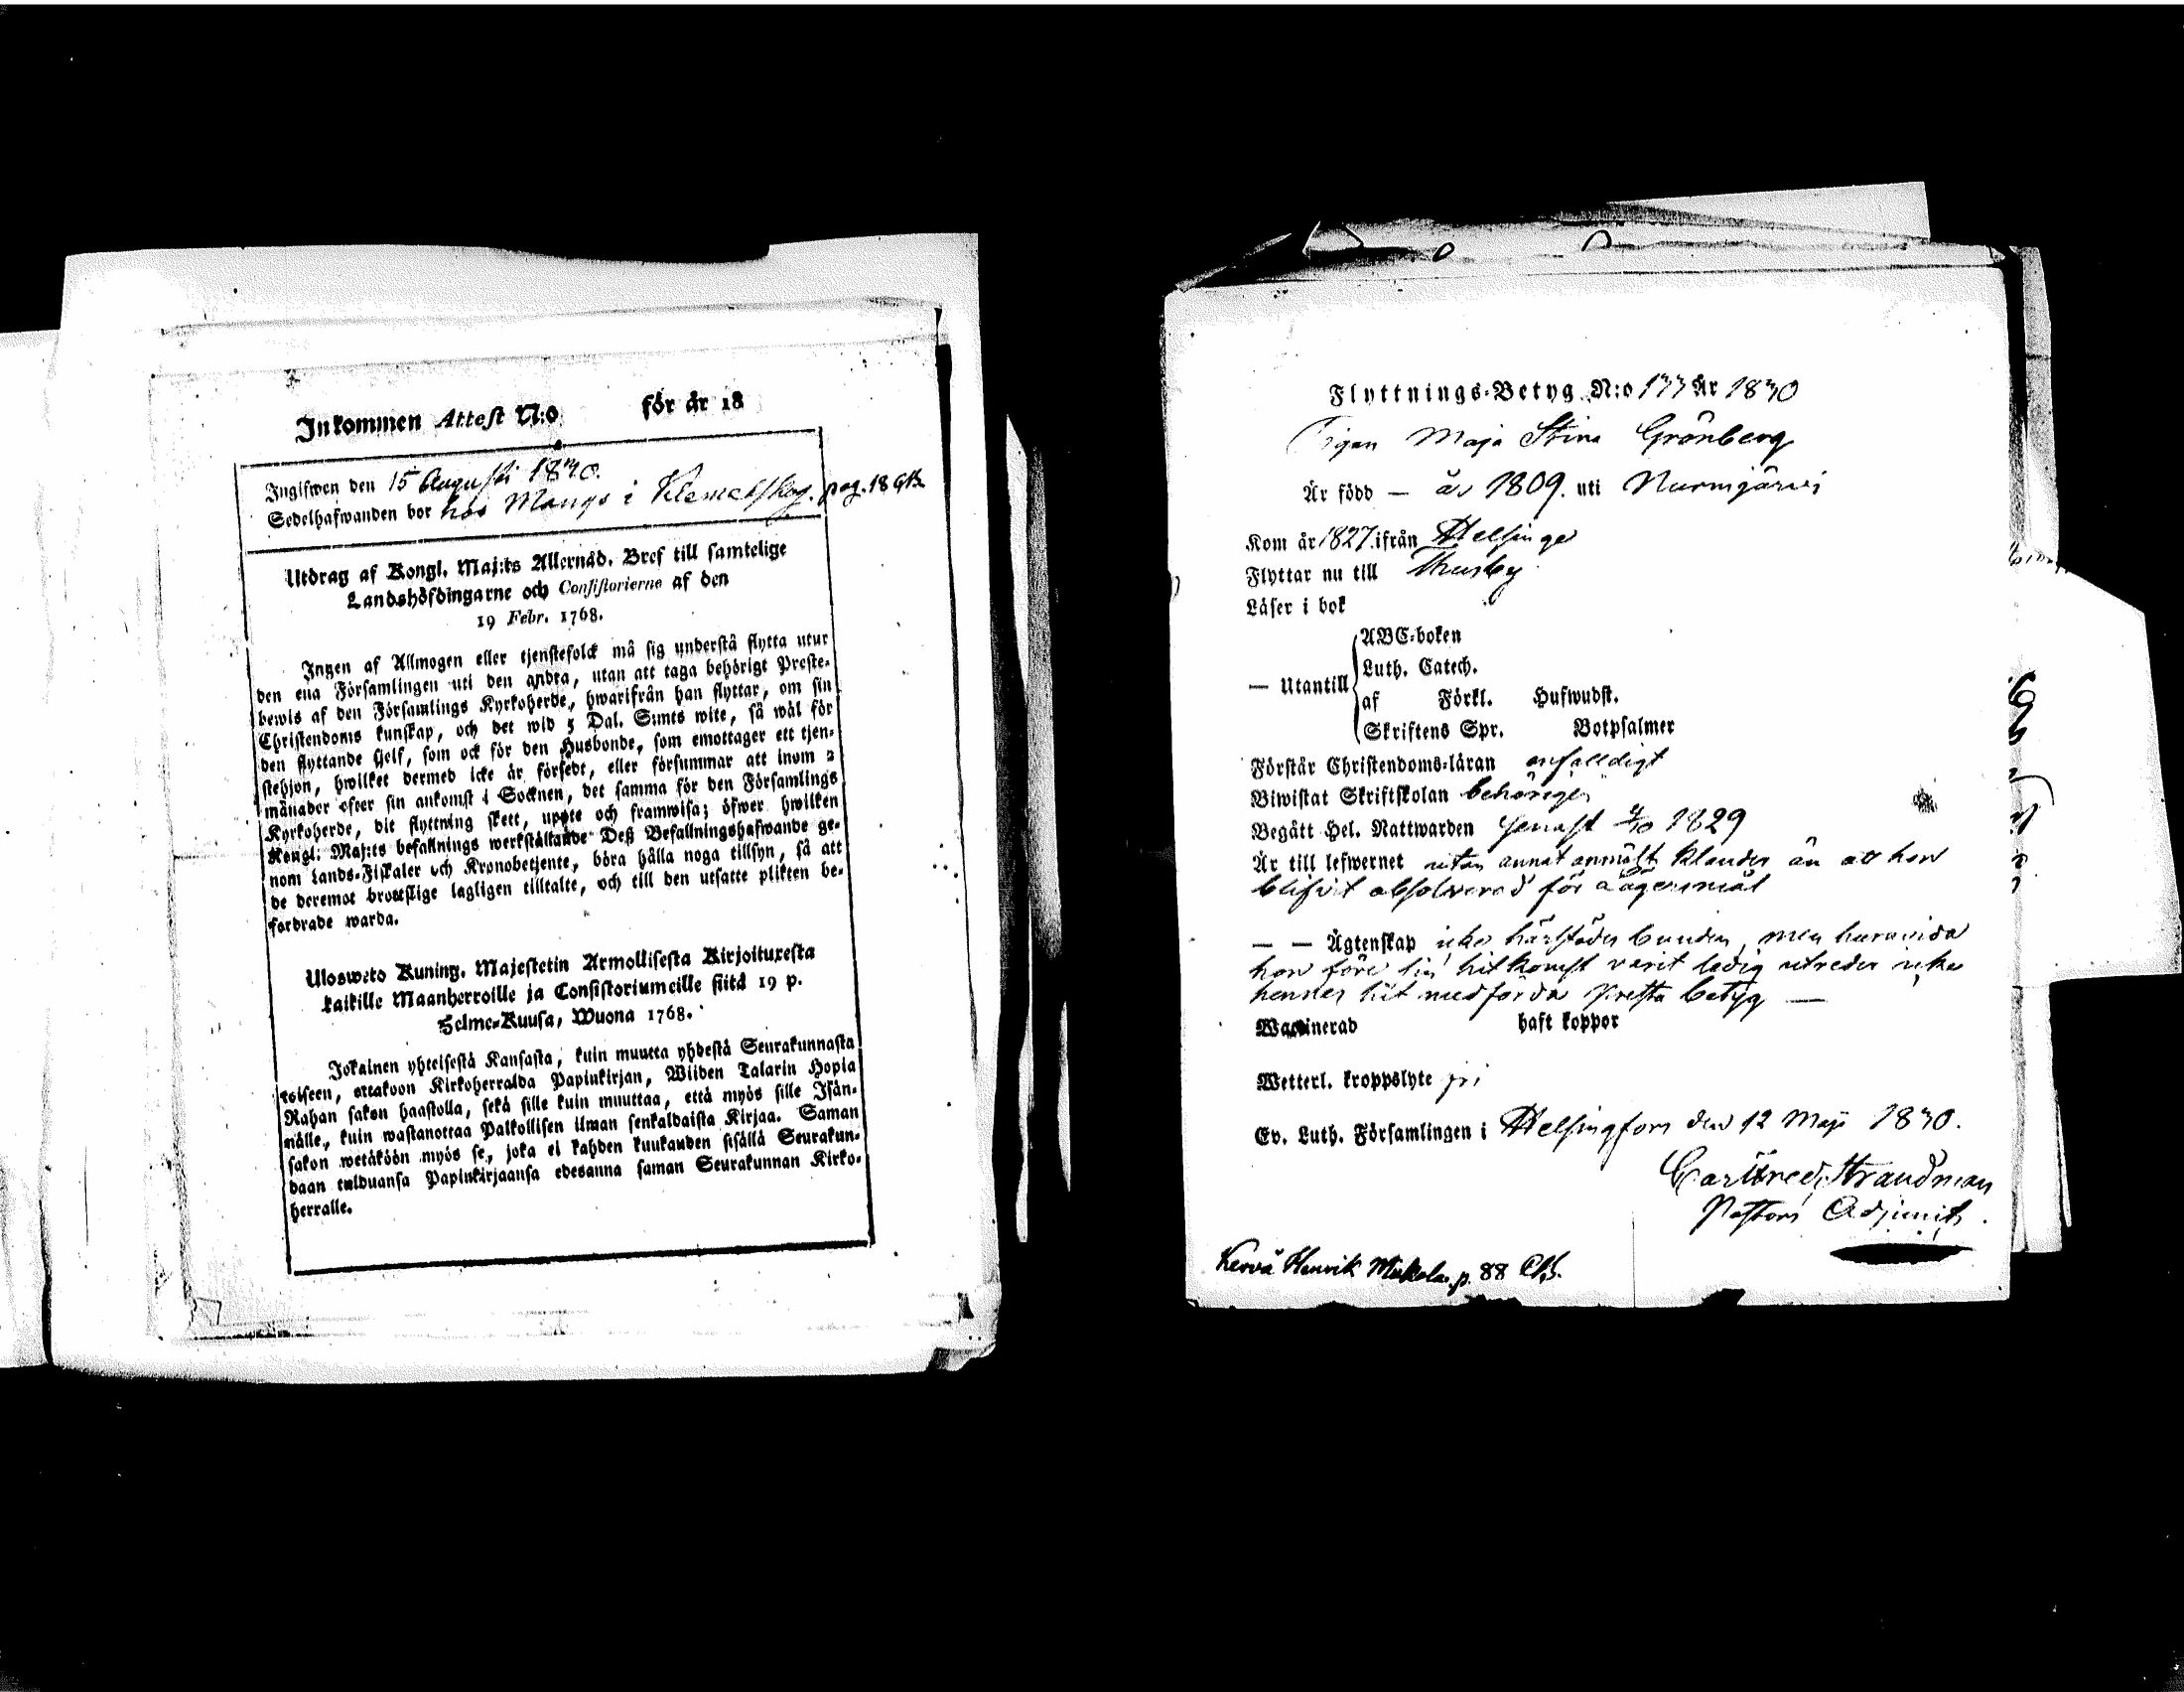 Inkommen Attest N:o för år 18
Ingifwen den 15 Augusti 1830.
Sedelhafwanden bor hos Mangs i Klemetskog. pag. 18 GB.
Utdrag af Kongl. Maj:ts Allernåd. Bref till samtelige
Landshöfdingarne och Consistorierne af den
19 Febr. 1768.
Ingen af Allmogen eller tjenstefolck må sig understå flytta utur
den ena Församlingen uti den andra, utan att taga behörigt Preste-
bewis af den Församlings Kyrkoherde, hwarifrån han flyttar, om sin
Christendoms kunskap, och det wid 5 Dal. S:mts wite, så wäl för
den flyttande sjelf, som ock för den Husbonde, som emottager ett tjen-
stehjon, hwilket dermed icke är försedt, eller försummar att inom 2
månader efter sin ankomst i Socknen, det samma för den Församlings
Kyrkoherde, dit flyttning skett, uppte och framwisa; öfwer hwilken
Kongl. Maj:ts befallnings werkställande Deß Befallningshafwande ge-
nom Lands-Fiskaler och Kronobetjente, böra hålla noga tillsyn, så att
de deremot brottslige lagligen tilltalte, och till den utsatte plikten be-
fordrade warda.
Ulosweto Kuning. Majestetin Armollisesta Kirjoituxesta
kaikille Maanherroille ja Consistoriumeille siitä 19 p.
Helme-Kuusa, Wuona 1768.
Jokainen yhteisestä Kansasta, kuin muutta yhdestä Seurakunnasta
toiseen, ottakoon Kirkoherralda Papinkirjan, Wiiden Talarin Hopia
Rahan sakon haastolla, sekä sille kuin muuttaa, että myös sille Isän-
nälle, kuin wastanottaa Palkollisen ilman senkaldaista Kirjaa. Saman
sakon wetäköön myös se, joka ei kahden kuukauden sisällä Seurakun-
daan tulduansa Papinkirjaansa edesanna saman Seurakunnan Kirko-
herralle.
Flyttnings-Betyg N:o 133 År 1830
Pigan Maja Stina Grönberg
Är född — år 1809. uti Nurmijärvi
Kom år 1827. ifrån Helsinge
Flyttar nu till Thusby
Läser i bok
— Utantill
ABC-boken
Luth. Catech.
af Förkl. Hufwudst.
Skriftens Spr. Botpsalmer
Förstår Christendoms-läran enfalldigt
Biwistat Skriftskolan behörigen
Begått Hel. Nattwarden senast 4/10 1829
Är till lefwernet utan annat anmält klander än att hon
blifvit absolverad för lägersmål
— — Ägtenskap icke härstädes bunden, men huruvida
hon före sin hitkomst varit ledig utreder icke
hennes hit medförda presta betyg —
Waccinerad haft koppor
Wetterl. kroppslyte fri
Ev. Luth. Församlingen i Helsingfors den 12 Maji 1830.
Carl Fredr. Strandman
Pastors Adjunct.
Kervä Henrik Mickola p. 88 Chb.